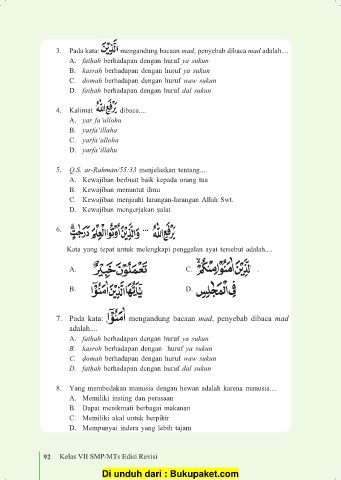 3. Pada kata: الَّذِيْنَ mengandung bacaan mad, penyebab dibaca mad adalah....
A. fatḥah berhadapan dengan huruf ya sukun
B. kasrah berhadapan dengan huruf ya sukun
C. ḍomah berhadapan dengan huruf waw sukun
D. fatḥah berhadapan dengan huruf dal sukun
4. Kalimat يَرْفَعِ اللّٰهُ dibaca....
A. yar fa'ullohu
B. yarfa'illaha
C. yarfa'ulloha
D. yarfa'illāhu
5. Q.S. ar-Rahmān/55:33 menjelaskan tentang....
A. Kewajiban berbuat baik kepada orang tua
B. Kewajiban menuntut ilmu
C. Kewajiban menjauhi larangan-larangan Allah Swt.
D. Kewajiban mengerjakan ṣalat
6. يَرْفَعِ اللّٰهُ ... وَالَّذِيْنَ اُوْتُوا الْعِلْمَ دَرَجٰتٍ
Kata yang tepat untuk melengkapi penggalan ayat tersebut adalah....
A. تَعْمَلُوْنَ خَبِيْرٌ C. الَّذِيْنَ اٰمَنُوْا مِنْكُمْ .
B. يٰٓاَيُّهَا الَّذِيْنَ اٰمَنُوْٓا D. فِى الْمَجٰلِسِ
7. Pada kata: اٰمَنُوْٓا mengandung bacaan mad, penyebab dibaca mad
adalah....
A. fatḥah berhadapan dengan huruf ya sukun
B. kasroh berhadapan dengan huruf ya sukun
C. ḍomah berhadapan dengan huruf waw sukun
D. fatḥah berhadapan dengan huruf dal sukun
8. Yang membedakan manusia dengan hewan adalah karena manusia....
A. Memiliki insting dan perasaan
B. Dapat menikmati berbagai makanan
C. Memiliki akal untuk berpikir
D. Mempunyai indera yang lebih tajam
92 Kelas VII SMP/MTs Edisi Revisi
Di unduh dari : Bukupaket.com